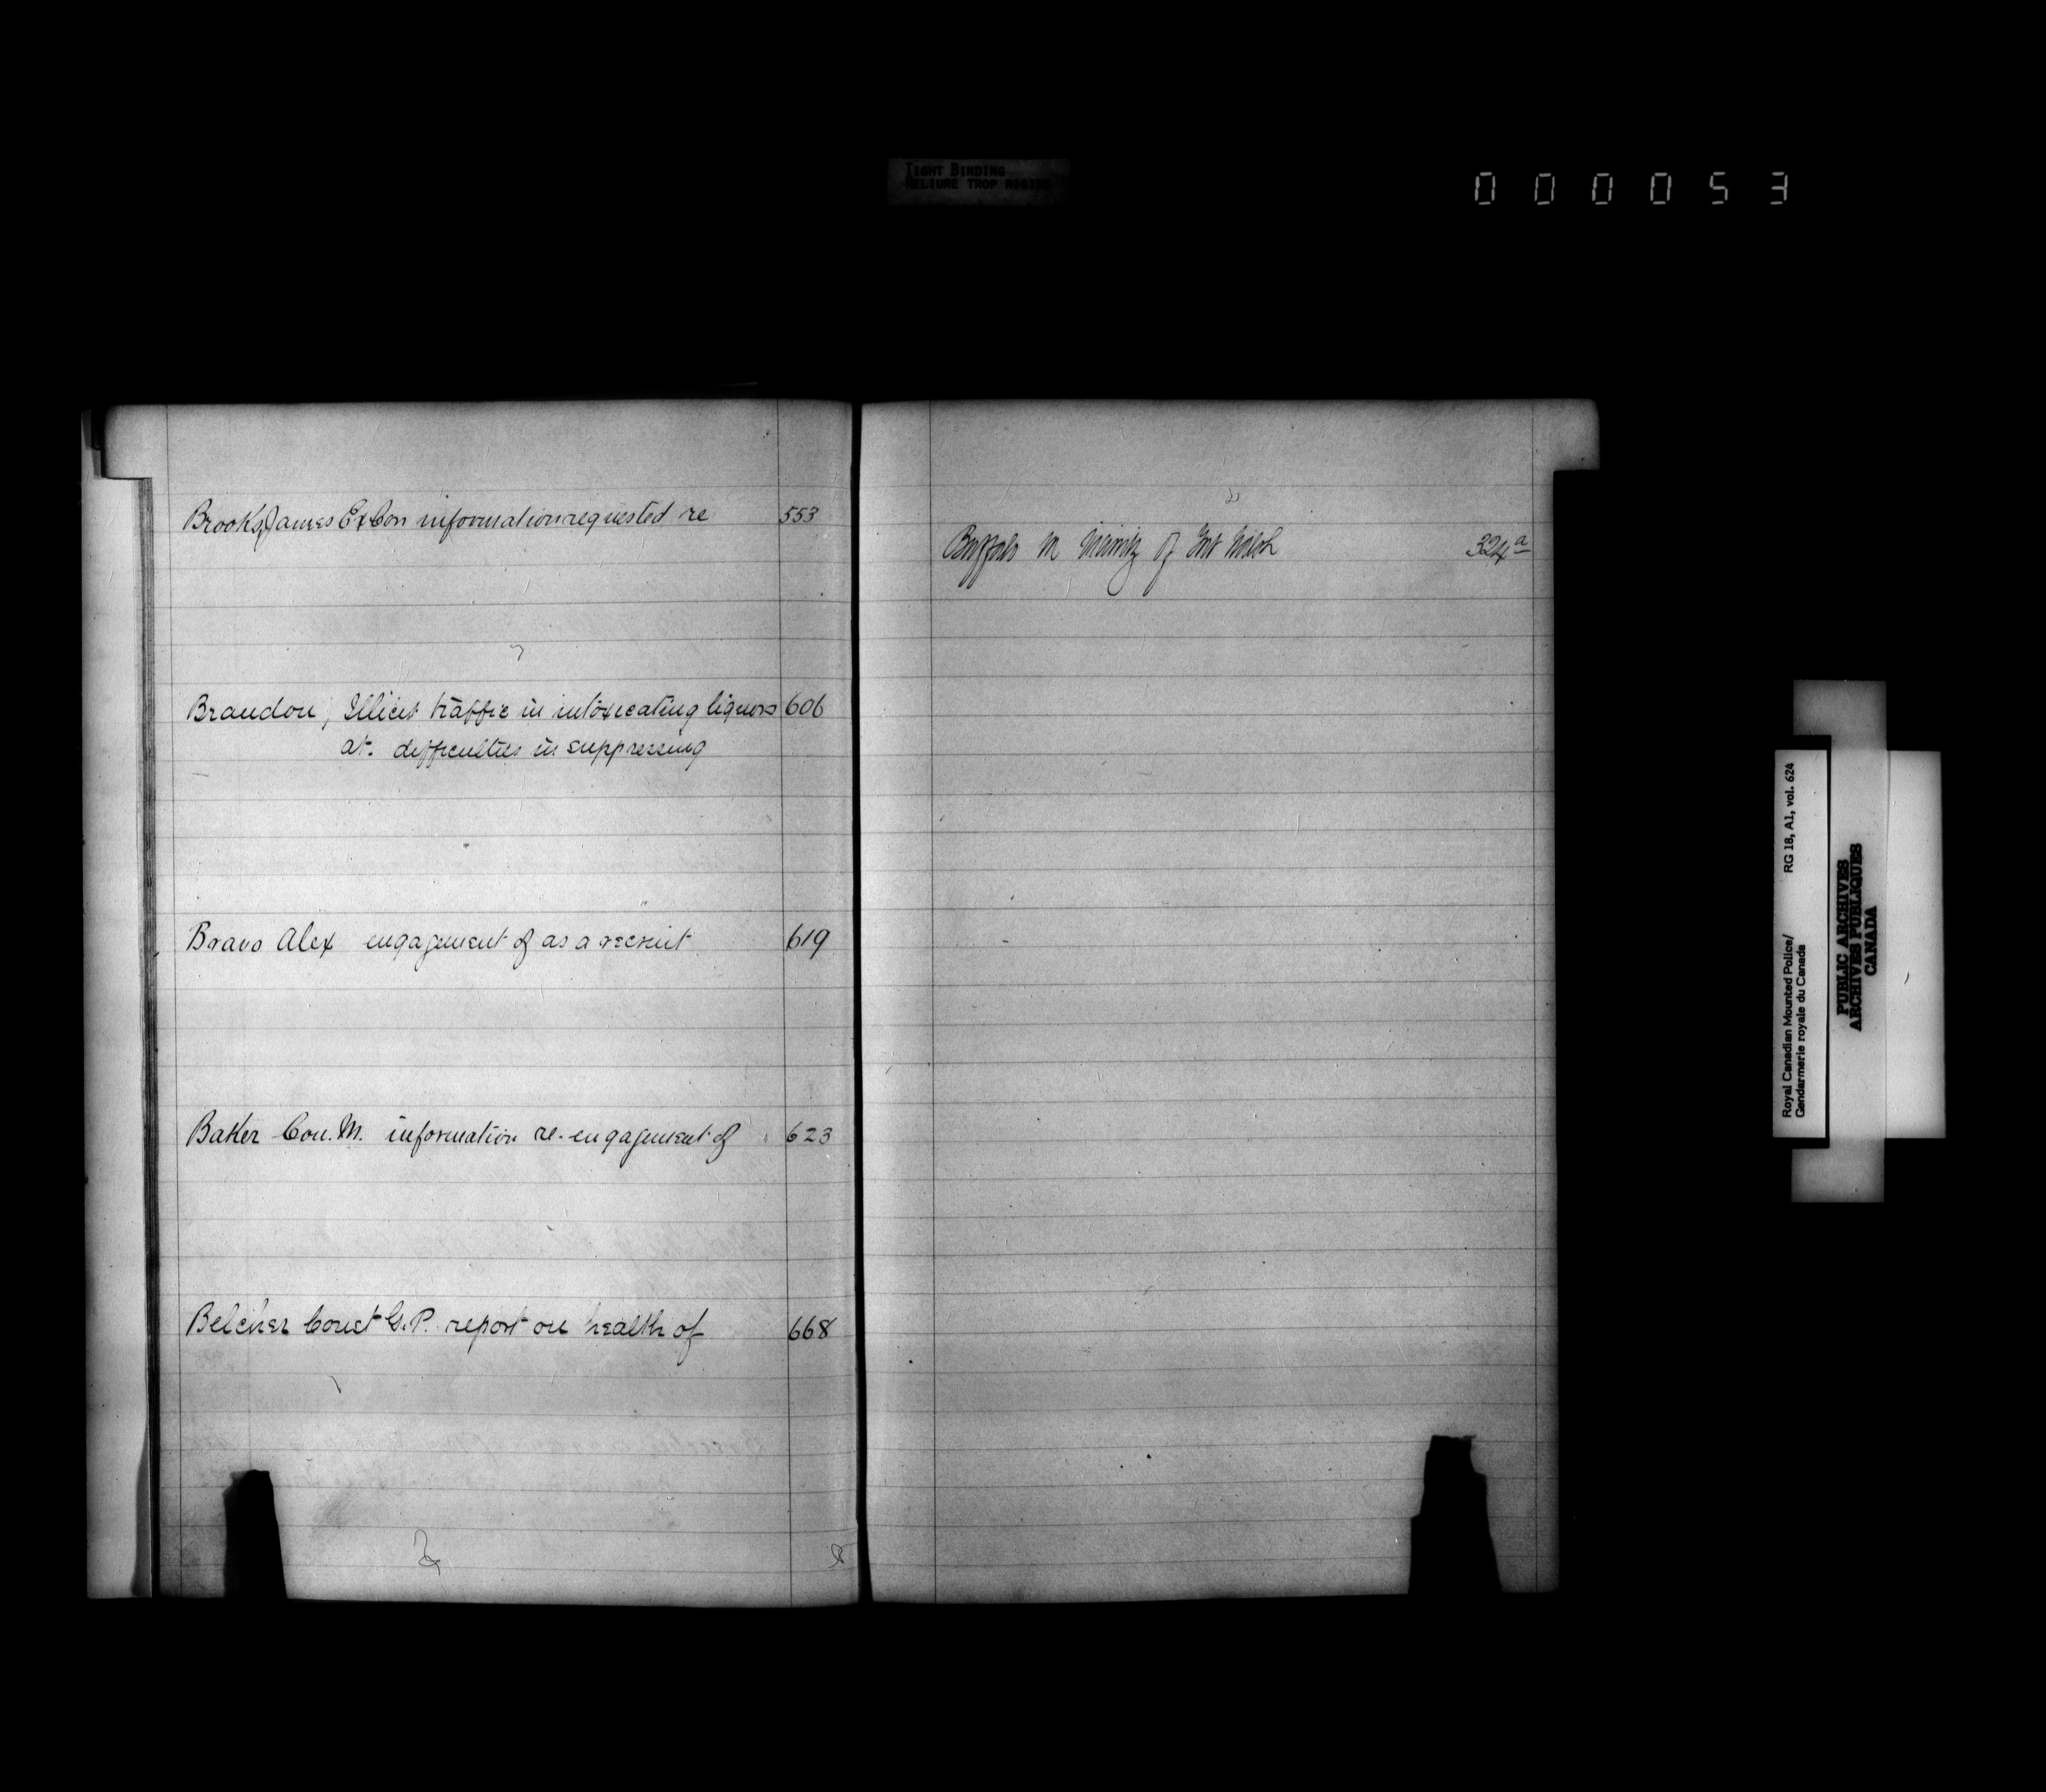 TIGHT BINDING
RELIURE TROP RIGIDE
000053
Brooks, James Ex Con information requested re 553
Brandon, Illicit traffic in intoxicating liquors 606
at. difficulties in suppressing
Bravo Alex engagement of as a recruit 619
Baker Con. M. information re-engagement of 623
Belcher Const G.P. report on health of 668
Buffalo in vicinity of Fort Walsh 324a
Royal Canadian Mounted Police/ RG 18, A1, vol. 624
Gendarmerie royale du Canada
PUBLIC ARCHIVES
ARCHIVES PUBLIQUES
CANADA